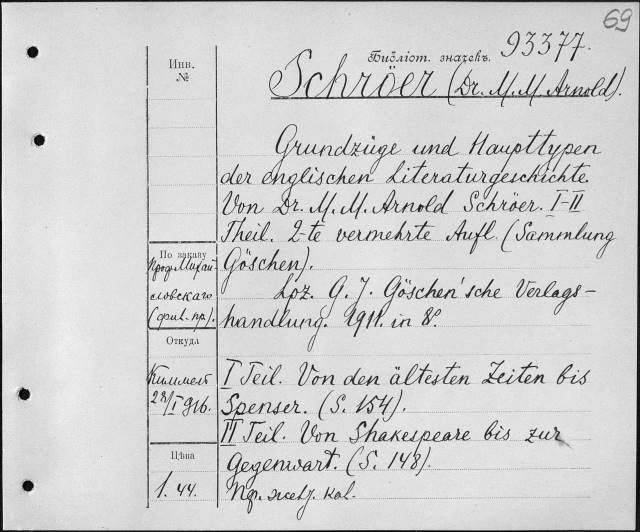 69
Библіот. значекъ. 93377.
Инв.
№
Schröer (Dr. M. M. Arnold).
Grundzüge und Haupttypen
der englischen Literaturgeschichte.
Von Dr. M. M. Arnold Schröer. I-II
Theil. 2-te vermehrte Aufl. (Sammlung
Göschen).
По заказу
Проф. Михай-
ловскаго
Lpz. G. J. Göschen'sche Verlags-
handlung. 1911. in 8°.
Откуда
Киммель
28/I 916.
I Teil. Von den ältesten Zeiten bis
Spenser. (S. 154).
II Teil. Von Shakespeare bis zur
Gegenwart. (S. 148).
Цѣна
1. 44.